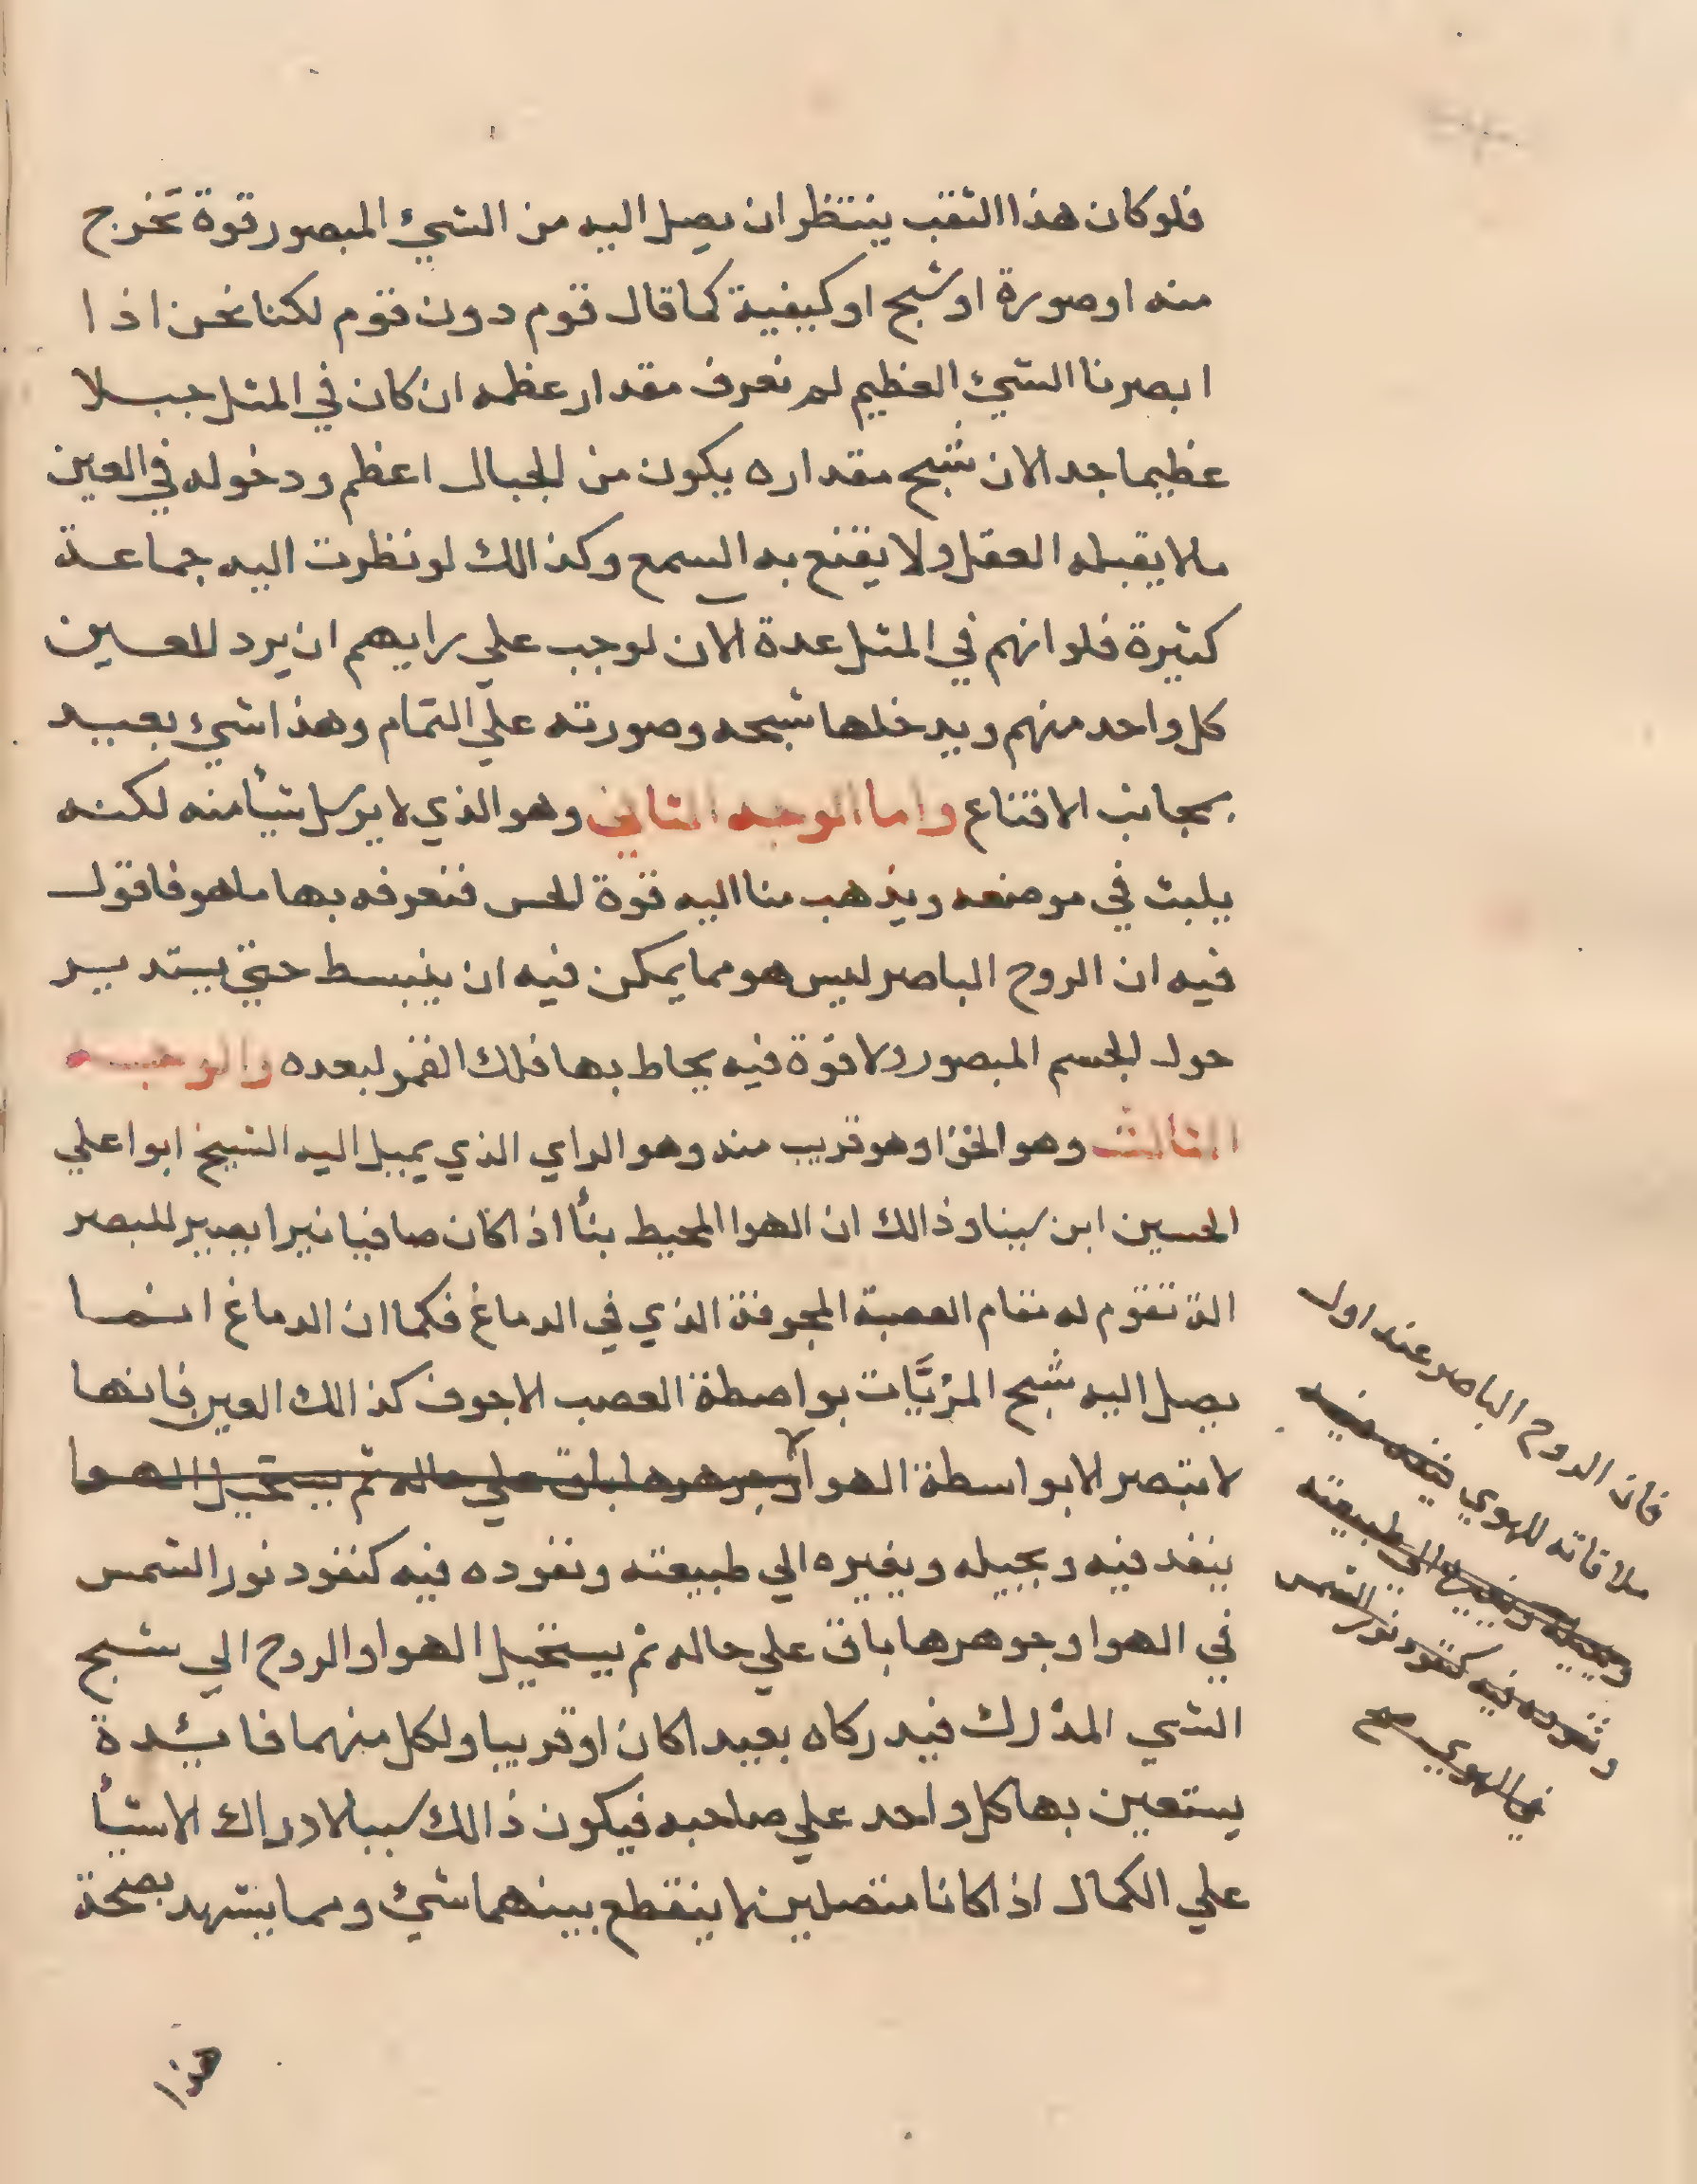 فلو كان هذا الثقب ينتظر ان يصل اليه من الشيء المبصور قوة تخرج
منه او صورة او شبح او كيفية كما قال قوم دون قوم لكنا نحن اذا
ابصرنا الشيء العظيم لم نعرف مقدار عظمه ان كان في المثل جبلا
عظيما جدا لان شبح مقداره يكون من الجبال اعظم ودخوله في العين
ملا يقبله العقل ولا يقنع به السمع وكذالك لو نظرت اليه جماعة
كثيرة فلو انهم في المثل عدة الان لوجب علي رايهم ان يرد للعين
كل واحد منهم ويدخلها شبحه وصورته علي التمام وهذا شيء بعيد
بجانب الاقناع واما الوجه الثاني وهو الذي لا يرسل شيأ منه لكنه
يلبث في موضعه ويذهب منا اليه قوة للحس فنعرفه بها ما هو فاقول
فيه ان الروح الباصر ليس هو مما يمكن فيه ان ينبسط حتي يستدير
حول الجسم المبصور ولا قوة فيه يحاط بها فلك القمر لبعده والوجه
الثالث وهو الحق او هو قريب منه وهو الراي الذي يميل اليه الشيخ ابوا علي
الحسين ابن سينا وذالك ان الهوا المحيط بنأ اذا كان صافيا نيرا يصير للبصر
الة تقوم له مقام العصبة المجوفة الذي في الدماغ فكما ان الدماغ انما
يصل اليه شبح المرئيّات بواصطة العصب الاجوف كذالك العين فانها
لا تبصر الا بواسطة الهوا وجوهرها باق علي حاله ثم يستحيل الهوا
ينفد فيه ويحيله ويغيره الي طبيعته ونفوده فيه كنفود نور الشمس
في الهوا وجوهرها باق علي حاله ثم يستحيل الهوا والروح الي شبح
الشي المدرك فيدركاه بعيدا كان او قريبا ولكل منهما فايئدة
يستعين بها كل واحد علي صاحبه فيكون ذالك سببا لادراك الاشيأ
علي الكمال اذا كانا متصلين لا ينقطع بينهما شيء ومما يشهد بصحة
هذا
فان الروح الباصر عند اول
ملاقاته للهوي ينفد فيه
ويحيله ويغيره الي طبيعته
ونفوده فيه كنفود نور الشمس
في الهوي صح